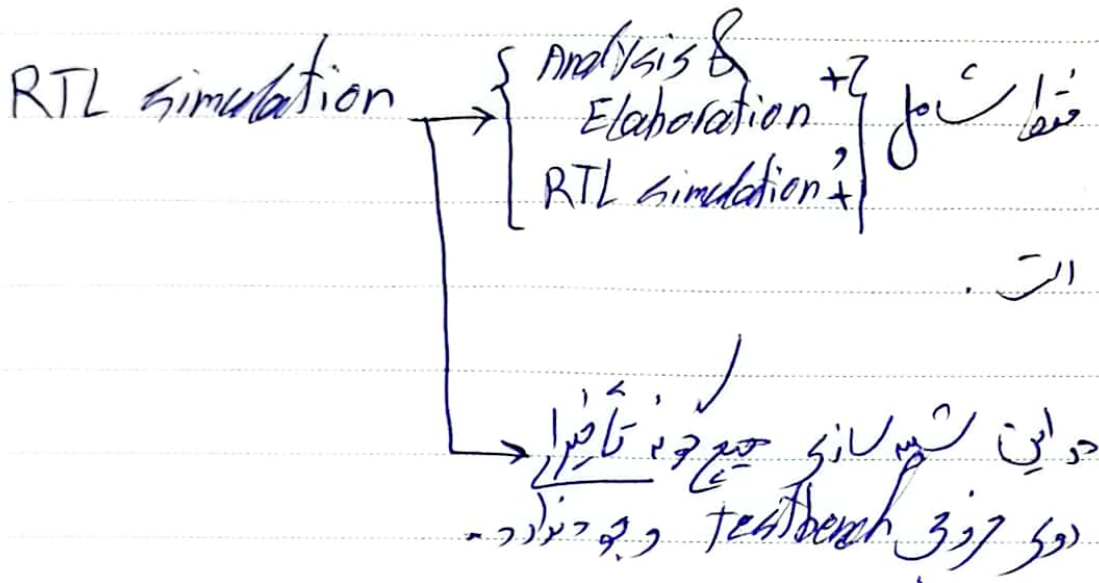 RTL simulation → { Analysis &
Elaboration +
RTL simulation + } فقط شامل
است .
در این شبیه سازی هیچ گونه تأخیری
روی خروجی testbench وجود ندارد.